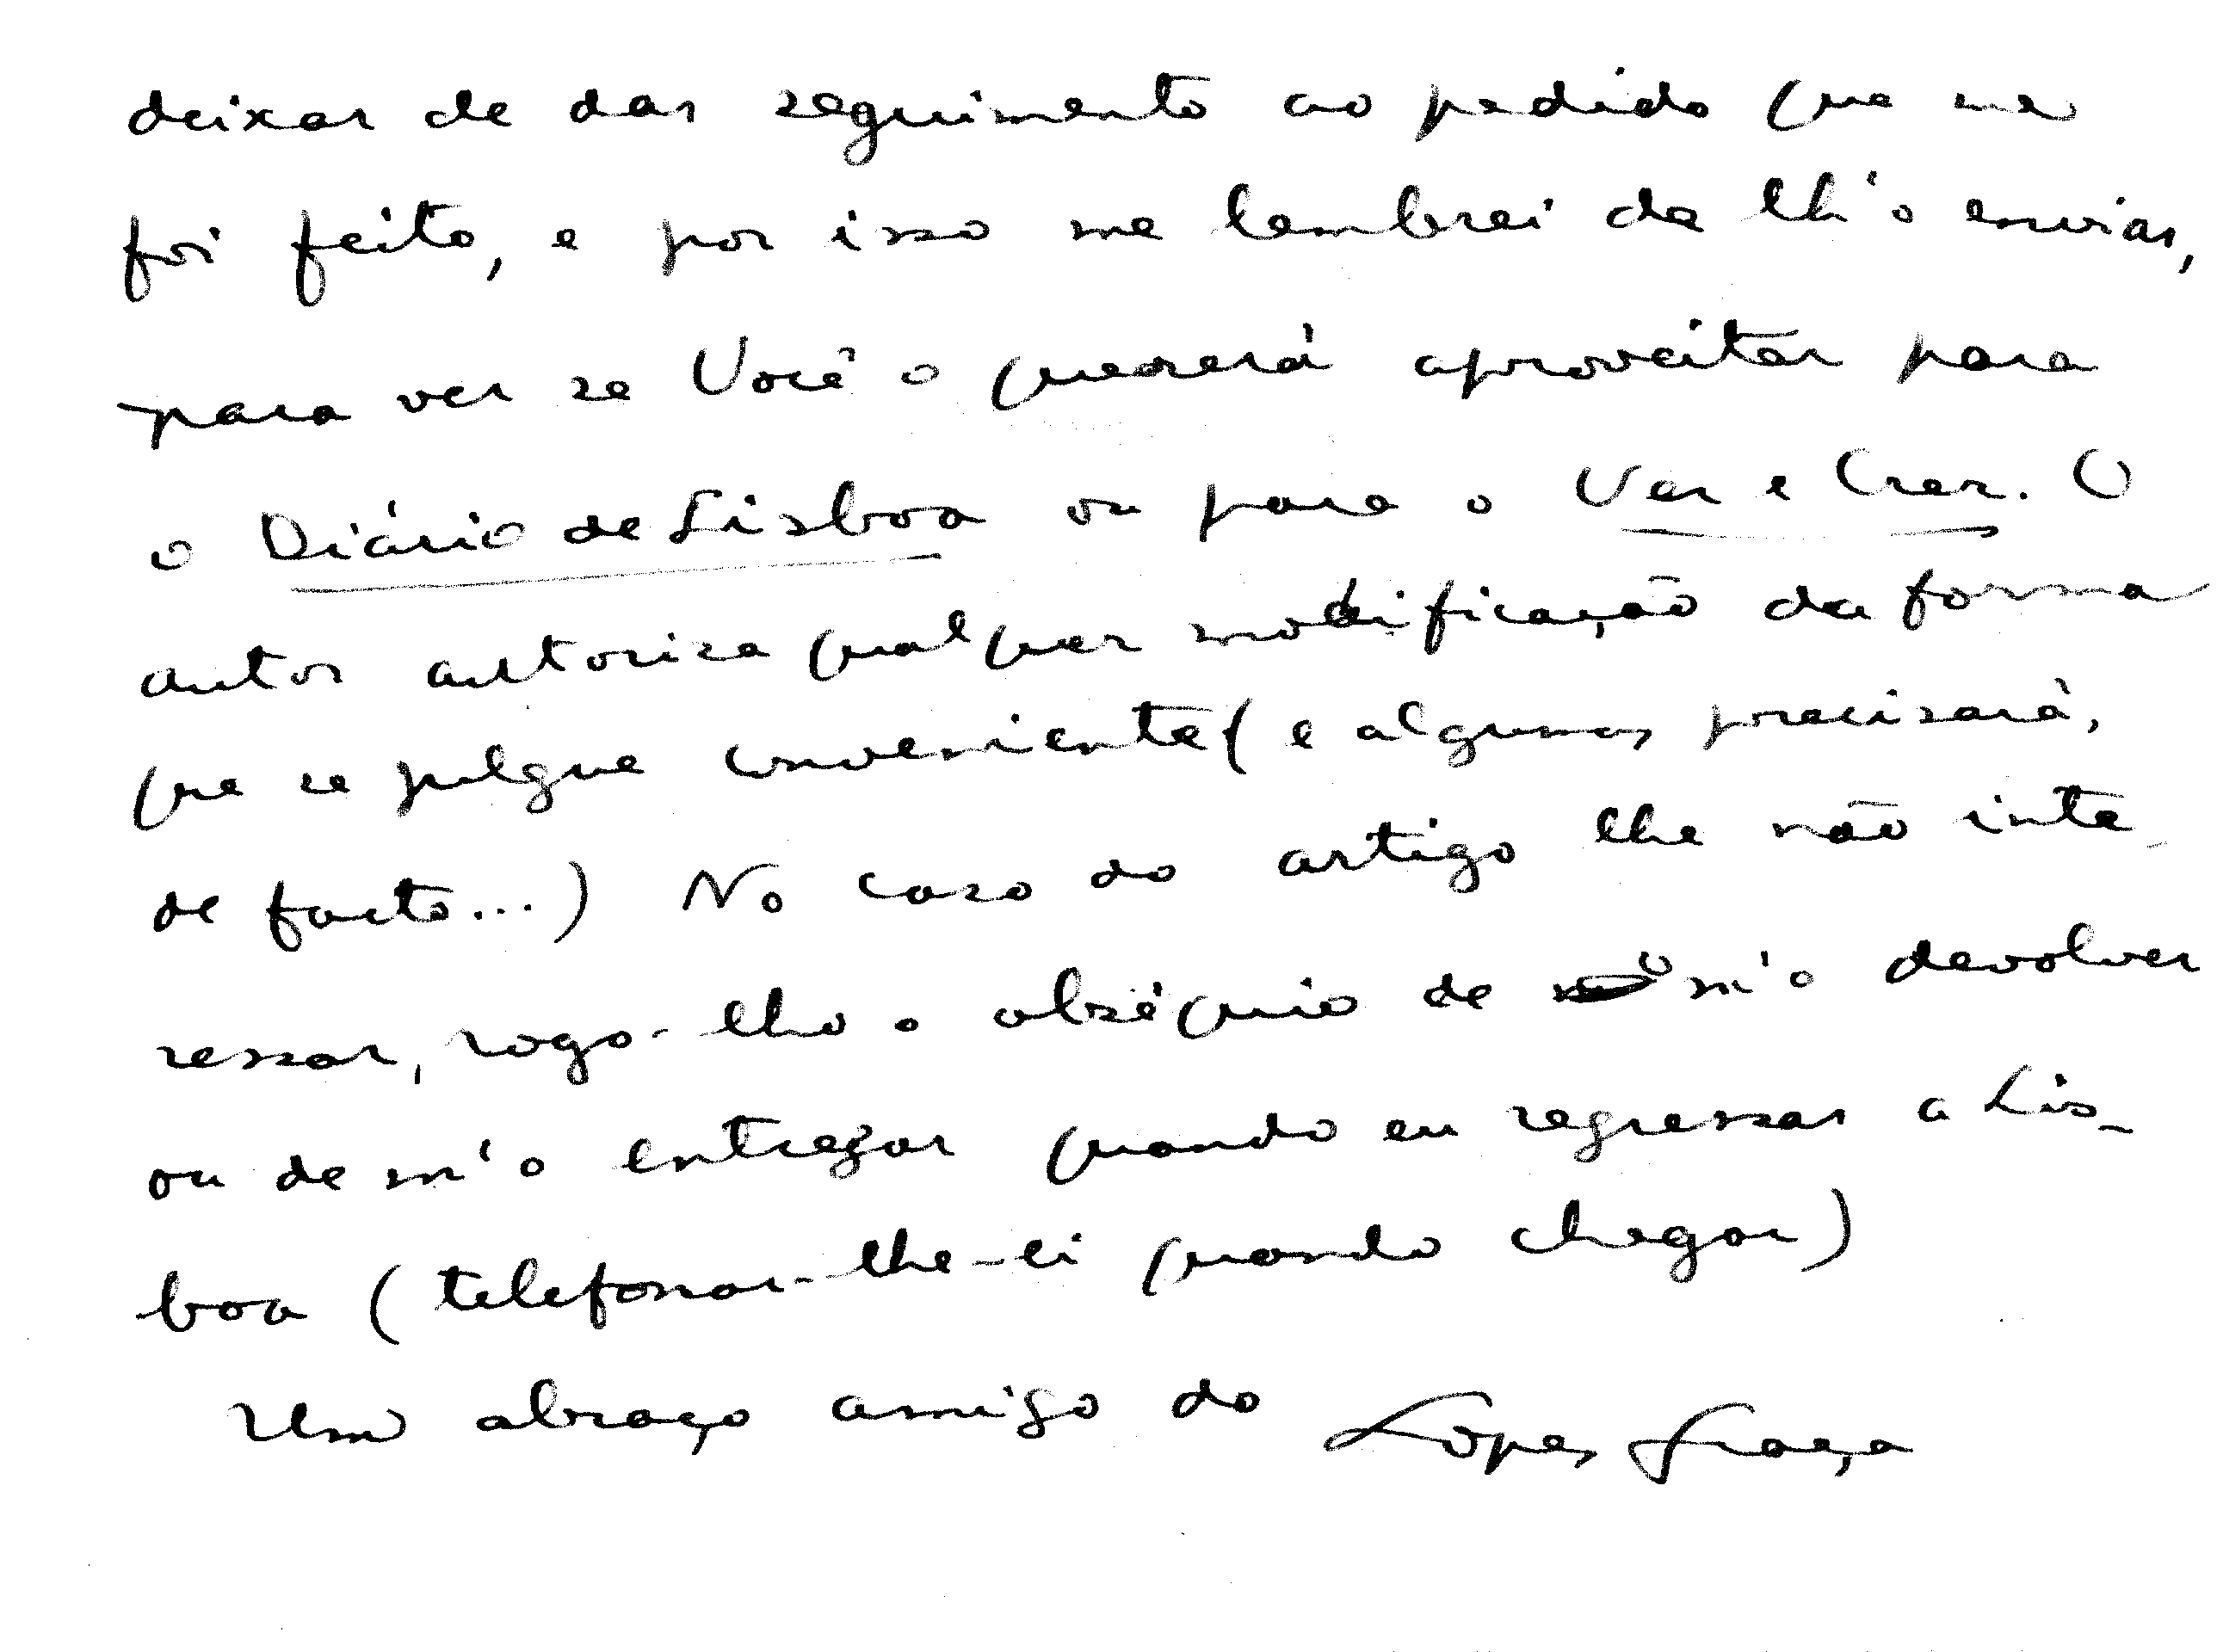 deixar de dar seguimento ao pedido que me
foi feito, e por isso me lembrei de lh'o enviar,
para ver se Você o quererá aproveitar para
o Diário de Lisboa ou para o Ver e Crer. O
autor autoriza qualquer modificação da forma
que se julgue conveniente (e algumas precisará,
de facto...) No caso do artigo lhe não inte-
ressar, rogo-lho o obséquio de m'o devolver
ou de m'o entregar quando eu regressar a Lis-
boa (telefonar-lhe-ei quando chegar)
Um abraço amigo do Lopes Graça